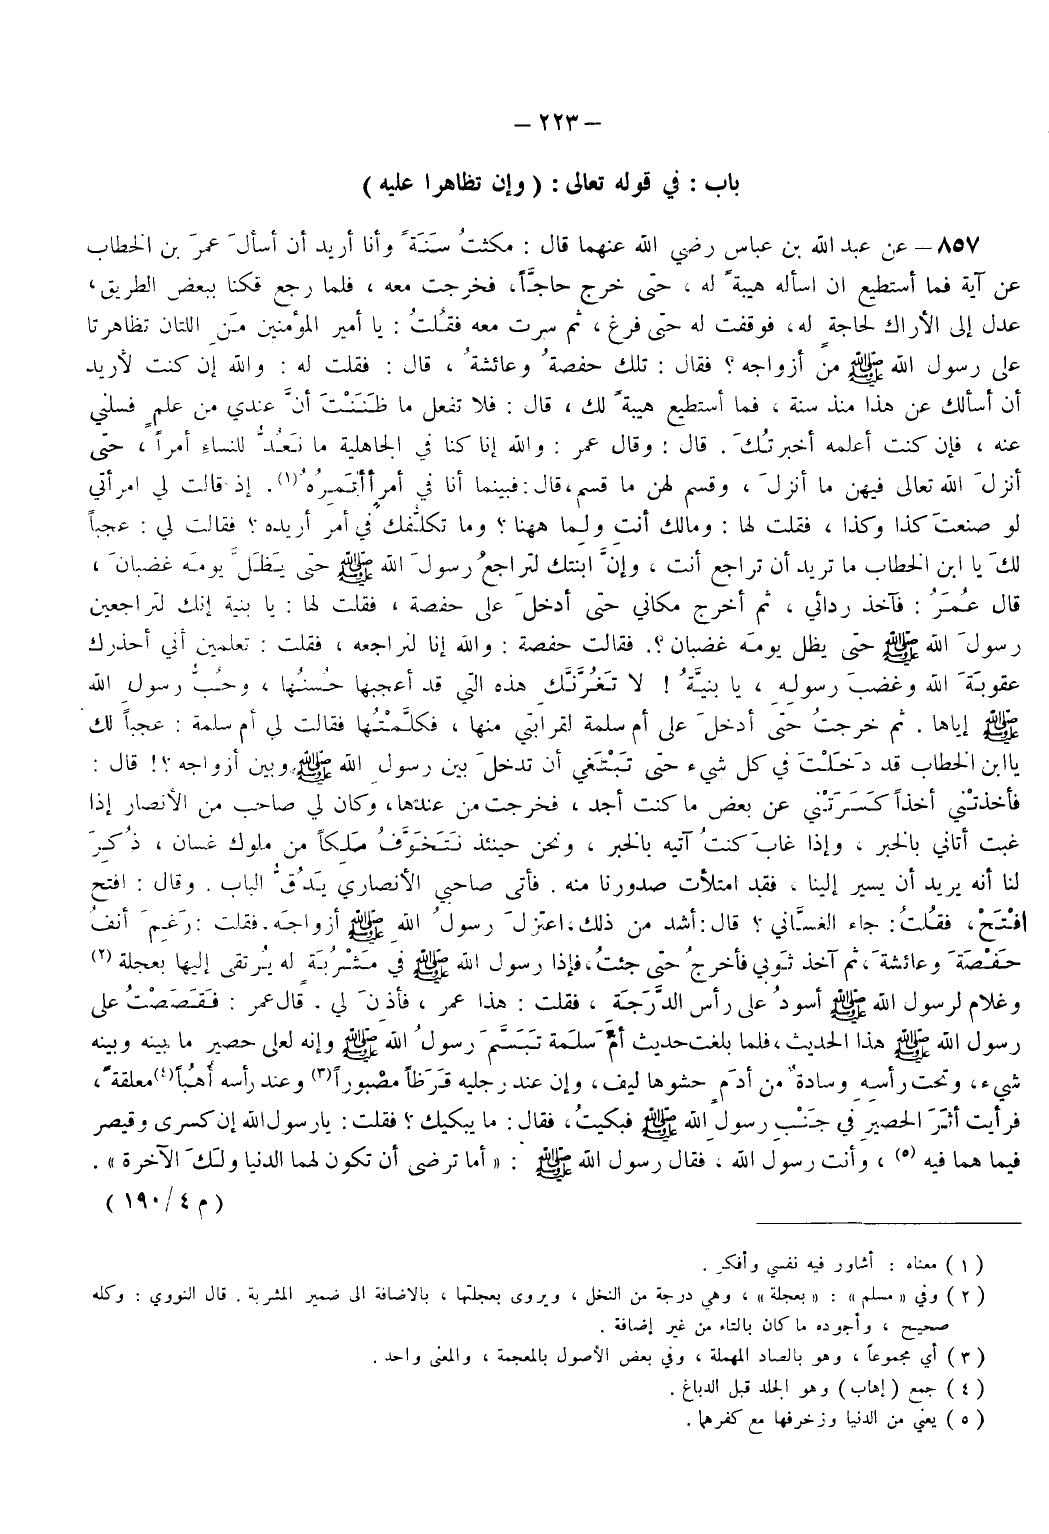 – ٢٢٣ –
باب : في قوله تعالى : ( وإن تظاهرا عليه )
٨٥٧ – عن عبد الله بن عباس رضي الله عنهما قال : مكثتُ سَنَةً وأنا أريد أن أسألَ عمرَ بن الخطاب
عن آية فما أستطيع ان اسأله هيبةً له ، حتى خرج حاجّاً، فخرجت معه ، فلما رجع فكنا ببعض الطريق،
عدل إلى الأراك لحاجةٍ له، فوقفت له حتى فرغ ، ثم سرت معه فقُلتُ : يا أمير المؤمنين مَنِ اللتان تظاهرتا
على رسول الله ﷺ من أزواجه ؟ فقال : تلك حفصةُ وعائشةُ ، قال : فقلت له : والله إن كنت لأريد
أن أسألك عن هذا منذ سنة ، فما أستطيع هيبةً لك ، قال : فلا تفعل ما ظَنَنْتَ أنَّ عندي من علمٍ فسلني
عنه ، فإن كنت أعلمه أخبرتُكَ . قال : وقال عمر : والله إنا كنا في الجاهلية ما نَعُدُّ للنساءِ أمراً ، حتى
أنزلَ الله تعالى فيهن ما أنزلَ ، وقسم لهن ما قسم،قال:فبينما أنا في أمرٍ أأتَمِرُهُ(١). إذ قالت لي امرأتي
لو صنعتَ كذا وكذا ، فقلت لها : ومالك أنتِ ولما ههنا ؟ وما تكلُّفك في أمر أريده ؟ فقالت لي : عجباً
لكَ يا ابن الخطاب ما تريد أن تراجع أنت ، وإنَّ ابنتك لتراجعُ رسولَ الله ﷺ حتى يَظَلَّ يومَه غضبانَ ،
قال عُمَرُ : فآخذ ردائي ، ثم أخرج مكاني حتى أدخلَ على حفصة ، فقلت لها : يا بنية إنك لتراجعين
رسولَ الله ﷺ حتى يظل يومَه غضبان ؟. فقالت حفصة : والله إنا لنراجعه ، فقلت : تعلمين أني أحذرك
عقوبةَ الله وغضبَ رسولهِ ، يا بنيَّةُ ! لا تَغُرَّنَّك هذه التي قد أعجبها حُسنُها ، وحُبُّ رسولِ الله
ﷺ إياها . ثم خرجتُ حتى أدخلَ على أم سلمة لقرابتي منها ، فكلَّمْتُها فقالت لي أم سلمة : عجباً لك
ياابن الخطاب قد دَخَلْتَ في كل شيء حتى تَبْتَغي أن تدخلَ بين رسولِ الله ﷺ وبين أزواجه ؟! قال :
فأخذتْني أخذاً كَسَرَتْني عن بعض ما كنت أجد ، فخرجت من عندها، وكان لي صاحب من الأنصار إذا
غبت أتاني بالخبر ، وإذا غابَ كنتُ آتيه بالخبر ، ونحن حينئذ نَتَخَوَّفُ مَلِكاً من ملوك غسان ، ذُكِرَ
لنا أنه يريد أن يسير إلينا ، فقد امتلأت صدورنا منه . فأتى صاحبي الأنصاري يَدُقُّ الباب . وقال : افتح
افْتَحْ، فقُلتُ: جاء الغسَّاني ؟ قال:أشد من ذلك،اعتزلَ رسولُ اللهِ ﷺ أزواجَه.فقلت :رَغِمَ أنفُ
حَفْصَةَ وعائشةَ، ثم آخذ ثوبي فأخرجُ حتى جئتُ،فإذا رسول الله ﷺ في مَشْرُبَةٍ له يُرتقى إليها بعجلة (٢)
وغلام لرسول الله ﷺ أسودُ على رأس الدَّرَجَةِ ، فقلت : هذا عمر ، فأذنَ لي . قال عمر : فَقَصَصْتُ على
رسول الله ﷺ هذا الحديث،فلما بلغت حديث أمِّ سَلَمة تَبَسَّمَ رسولُ الله ﷺ وإنه لعلى حصيرٍ ما بينه وبينه
شيء، وتحت رأسهِ وسادةٌ من أدَمٍ حشوها ليف، وإن عند رجليه قَرَظاً مصْبوراً(٣) وعند رأسه أُهُباً(٤)معلقةً،
فرأيت أثَرَ الحصيرِ في جَنْبِ رسولِ اللهِ ﷺ فبكيتُ، فقال: ما يبكيك ؟ فقلت: يارسول الله إن كسرى وقيصر
فيما هما فيه (٥) ، وأنت رسول الله ، فقال رسول الله ﷺ : « أما ترضى أن تكون لهما الدنيا ولكَ الآخرة » .
( م ٤ / ١٩٠ )
( ١ ) معناه : أشاور فيه نفسي وأفكر .
( ٢ ) وفي « مسلم » : « بعجلة » ، وهي درجة من النخل ، ويروى بعجلتها ، بالاضافة الى ضمير المشربة . قال النووي : وكله
صحيح ، وأجوده ما كان بالتاء من غير إضافة .
( ٣ ) أي مجموعاً ، وهو بالصاد المهملة ، وفي بعض الأصول بالمعجمة ، والمعنى واحد .
( ٤ ) جمع ( إهاب ) وهو الجلد قبل الدباغ .
( ٥ ) يعني من الدنيا وزخرفها مع كفرهما .